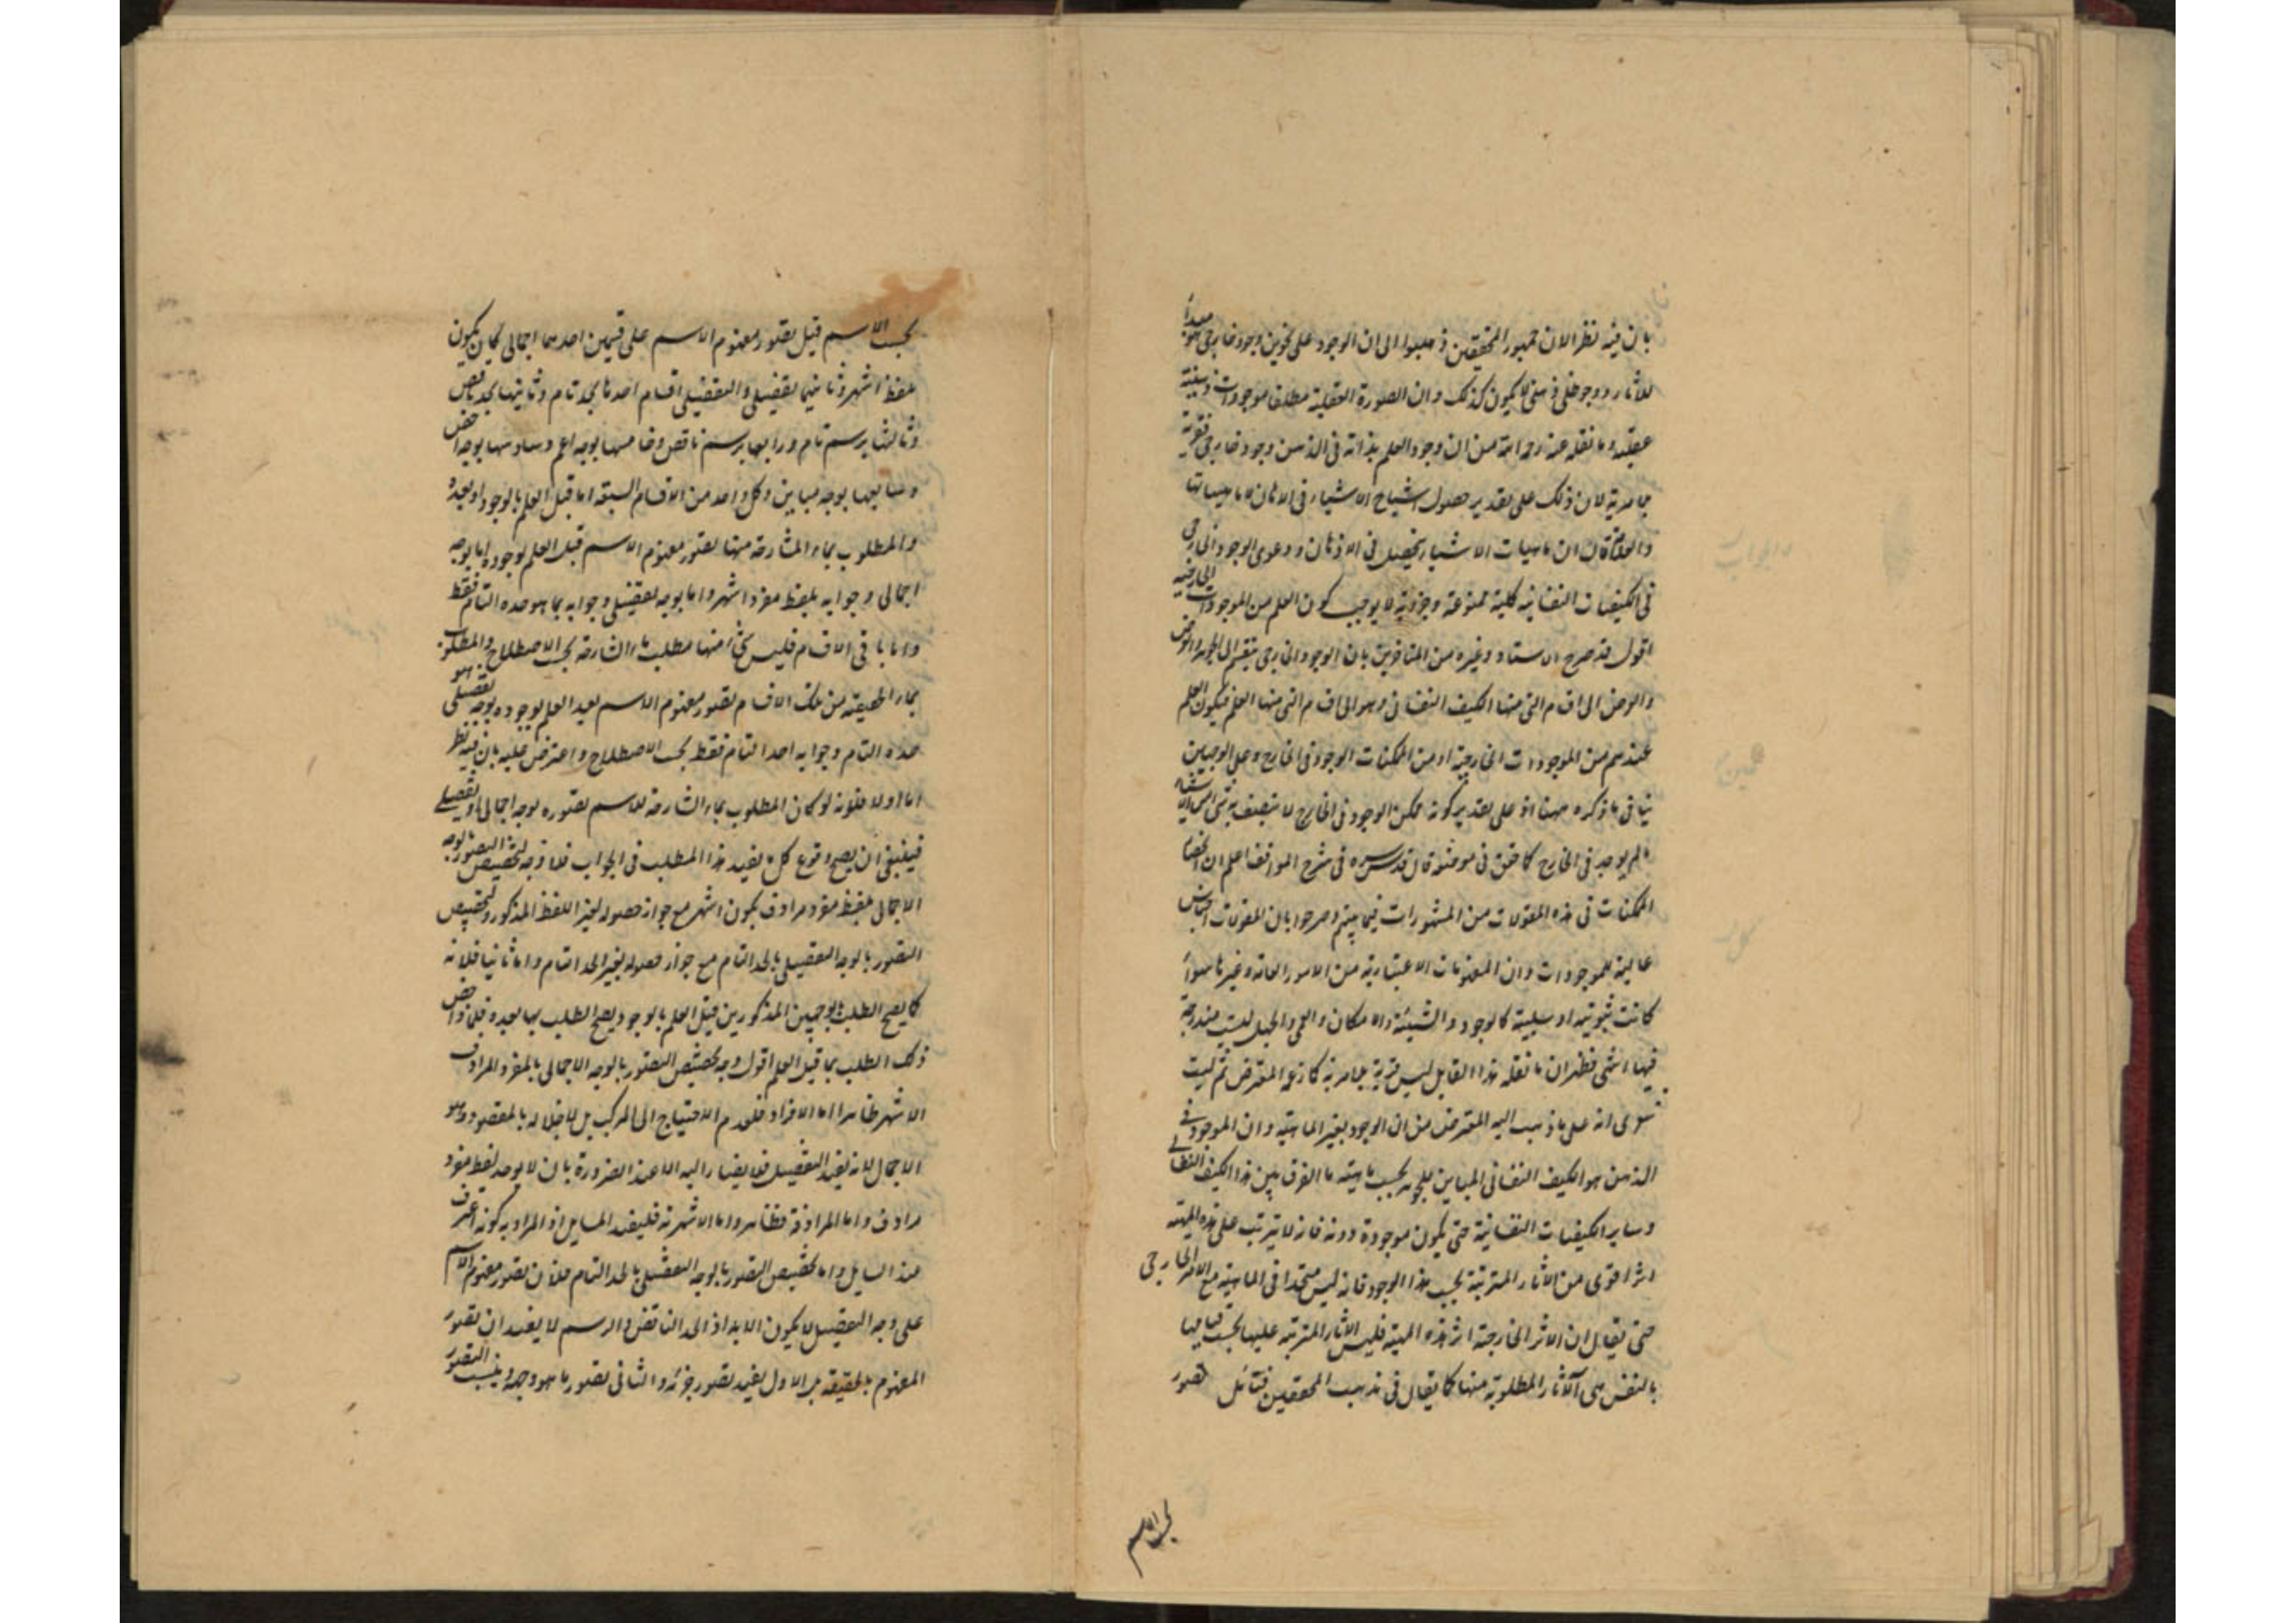 بان فيه نظر الان جمهور المحققين ذهبوا الى ان الوجود على نحوين وجود خارجى هو مبدأ
للآثار ووجود ظلى ذهنى لا يكون كذلك وان الصورة العقلية مطلقا موجودات ذهنية
عقلية وما نقله عنه رحمه الله من ان وجود العلم بذاته فى الذهن وجود خارجى
لان ذلك على تقدير حصول اشباح الاشياء فى الاذهان لا ماهياتها
قال ان ماهيات الاشياء يحصل فى الاذهان ودعوى الوجود الخارجى
فى الكيفيات النفسانية كلية ممنوعة وجزئية لا يوجب كون العلم من الموجودات الخارجية
اقول قد صرح الاستاد وغيره من المتاخرين بان الموجود الخارجى ينقسم الى الجوهر والعرض
والعرض الى اقسام التى منها الكيف النفسانى وهو الى اقسام التى منها العلم فيكون العلم
عندهم من الموجودات الخارجية او من الممكنات الوجود فى الخارج وعلى الوجهين
ينافى ما ذكره مهنا اذ على تقدير كونه ممكن الوجود فى الخارج لا يتصف به
ما لم يوجد فى الخارج كما حقق فى موضعه قال قدس سره فى شرح المواقف اعلم ان انحصار
الممكنات فى هذه المقولات من المشهورات فيما بينهم وصرحوا بان المقولات اجناس
عالية للموجودات وان المفهومات الاعتبارية من الامور العامة وغيرها سواء
كانت ثبوتية او سلبية كالوجود والشيئية والامكان والعمى والجهل ليست مندرجة
فيها انتهى فظهر ان ما نقله هذا القايل ليس فرية بلا مرية كما زعمه المعترض ثم ليت
شعرى انه على ما ذهب اليه المعترض من ان الوجود بغير الماهية وان الموجود فى
الذهن هو الكيف النفسانى المباين للجوهر بحسب ماهيته ما الفرق بين هذا الكيف النفسانى
وساير الكيفيات النفسانية حتى يكون موجودة دونه فانه لا يترتب على هذه المهية
اثرا قوى من الآثار المترتبة بحسب هذا الوجود فانه ليس متحدا فى الماهية مع الامر الخارجى
حتى يقال ان الاثر الخارجية اثر هذه المهية فليس الآثار المترتبة عليها بحسب قيامها
بالنفس هى الآثار المطلوبة منها كما يقال فى مذهب المحققين فتأمل تصور
بحسب الاسم
بحسب الاسم قيل تصور مفهوم الاسم على قسمين احدهما اجمالى كما ان يكون
بلفظ اشهر وثانيهما تفصيلى والتفصيلى اقسام احدها بحد تام وثانيها بحد ناقص
وثالثها برسم تام ورابعها برسم ناقص وخامسها بوجه اعم وسادسها بوجه اخص
وسابعها بوجه مباين وكل واحد من الاقسام السبعة اما قبل العلم بالوجود او بعده
والمطلوب بماء الشارحة منها تصور مفهوم الاسم قبل العلم بوجوده اما بوجه
اجمالى وجوابه بلفظ مفرد اشهر واما بوجه تفصيلى وجوابه بما هو حده التام فقط
واما باقى الاقسام فليس شئ منها مطلب ماء الشارحة بحسب الاصطلاح والمطلوب
بماء الحقيقية من تلك الاقسام تصور مفهوم الاسم بعد العلم بوجوده بوجه تفصيلى هو
حده التام وجوابه الحد التام فقط بحسب الاصطلاح واعترض عليه بان فيه نظر
اما اولا فلانه لو كان المطلوب بماء الشارحة للاسم تصوره بوجه اجمالى او تفصيلى
فينبغى ان يصح وقوع كل ما يفيد هذا المطلب فى الجواب فلا وجه لتخصيص التصور بوجه
الاجمالى بلفظ مفرد مرادف يكون اشهر مع جواز حصوله بغير اللفظ المذكور ولتخصيص
التصور بالوجه التفصيلى بالحد التام مع جواز حصوله بغير الحد التام واما ثانيا فلانه
كما يصح الطلب بالوجهين المذكورين قبل العلم بالوجود يصح الطلب بهما بعده فلماذا خص
ذلك الطلب بما قبل العلم اقول وجه تخصيص التصور بالوجه الاجمالى بالمفرد المرادف
الاشهر ظاهر اما الافراد فلعدم الاحتياج الى المركب بل لاخلاله بالمقصود وهو
الاجمال لانه يفيد التفصيل فلا يصار اليه الا عند الضرورة بان لا يوجد لفظ مفرد
مرادف واما المرادفة فظاهر واما الاشهرية فليفيد السايل اذ المراد به كونه اعرف
عند السايل واما تخصيص التصور بالوجه التفصيلى بالحد التام فلان تصور مفهوم الاسم
على وجه التفصيل لا يكون الا به اذ الحد الناقص والرسم لا يفيد ان تصور
المفهوم بالحقيقة بل الاول يفيد تصور جزئه والثانى تصور ما هو وجه وينسب التصور